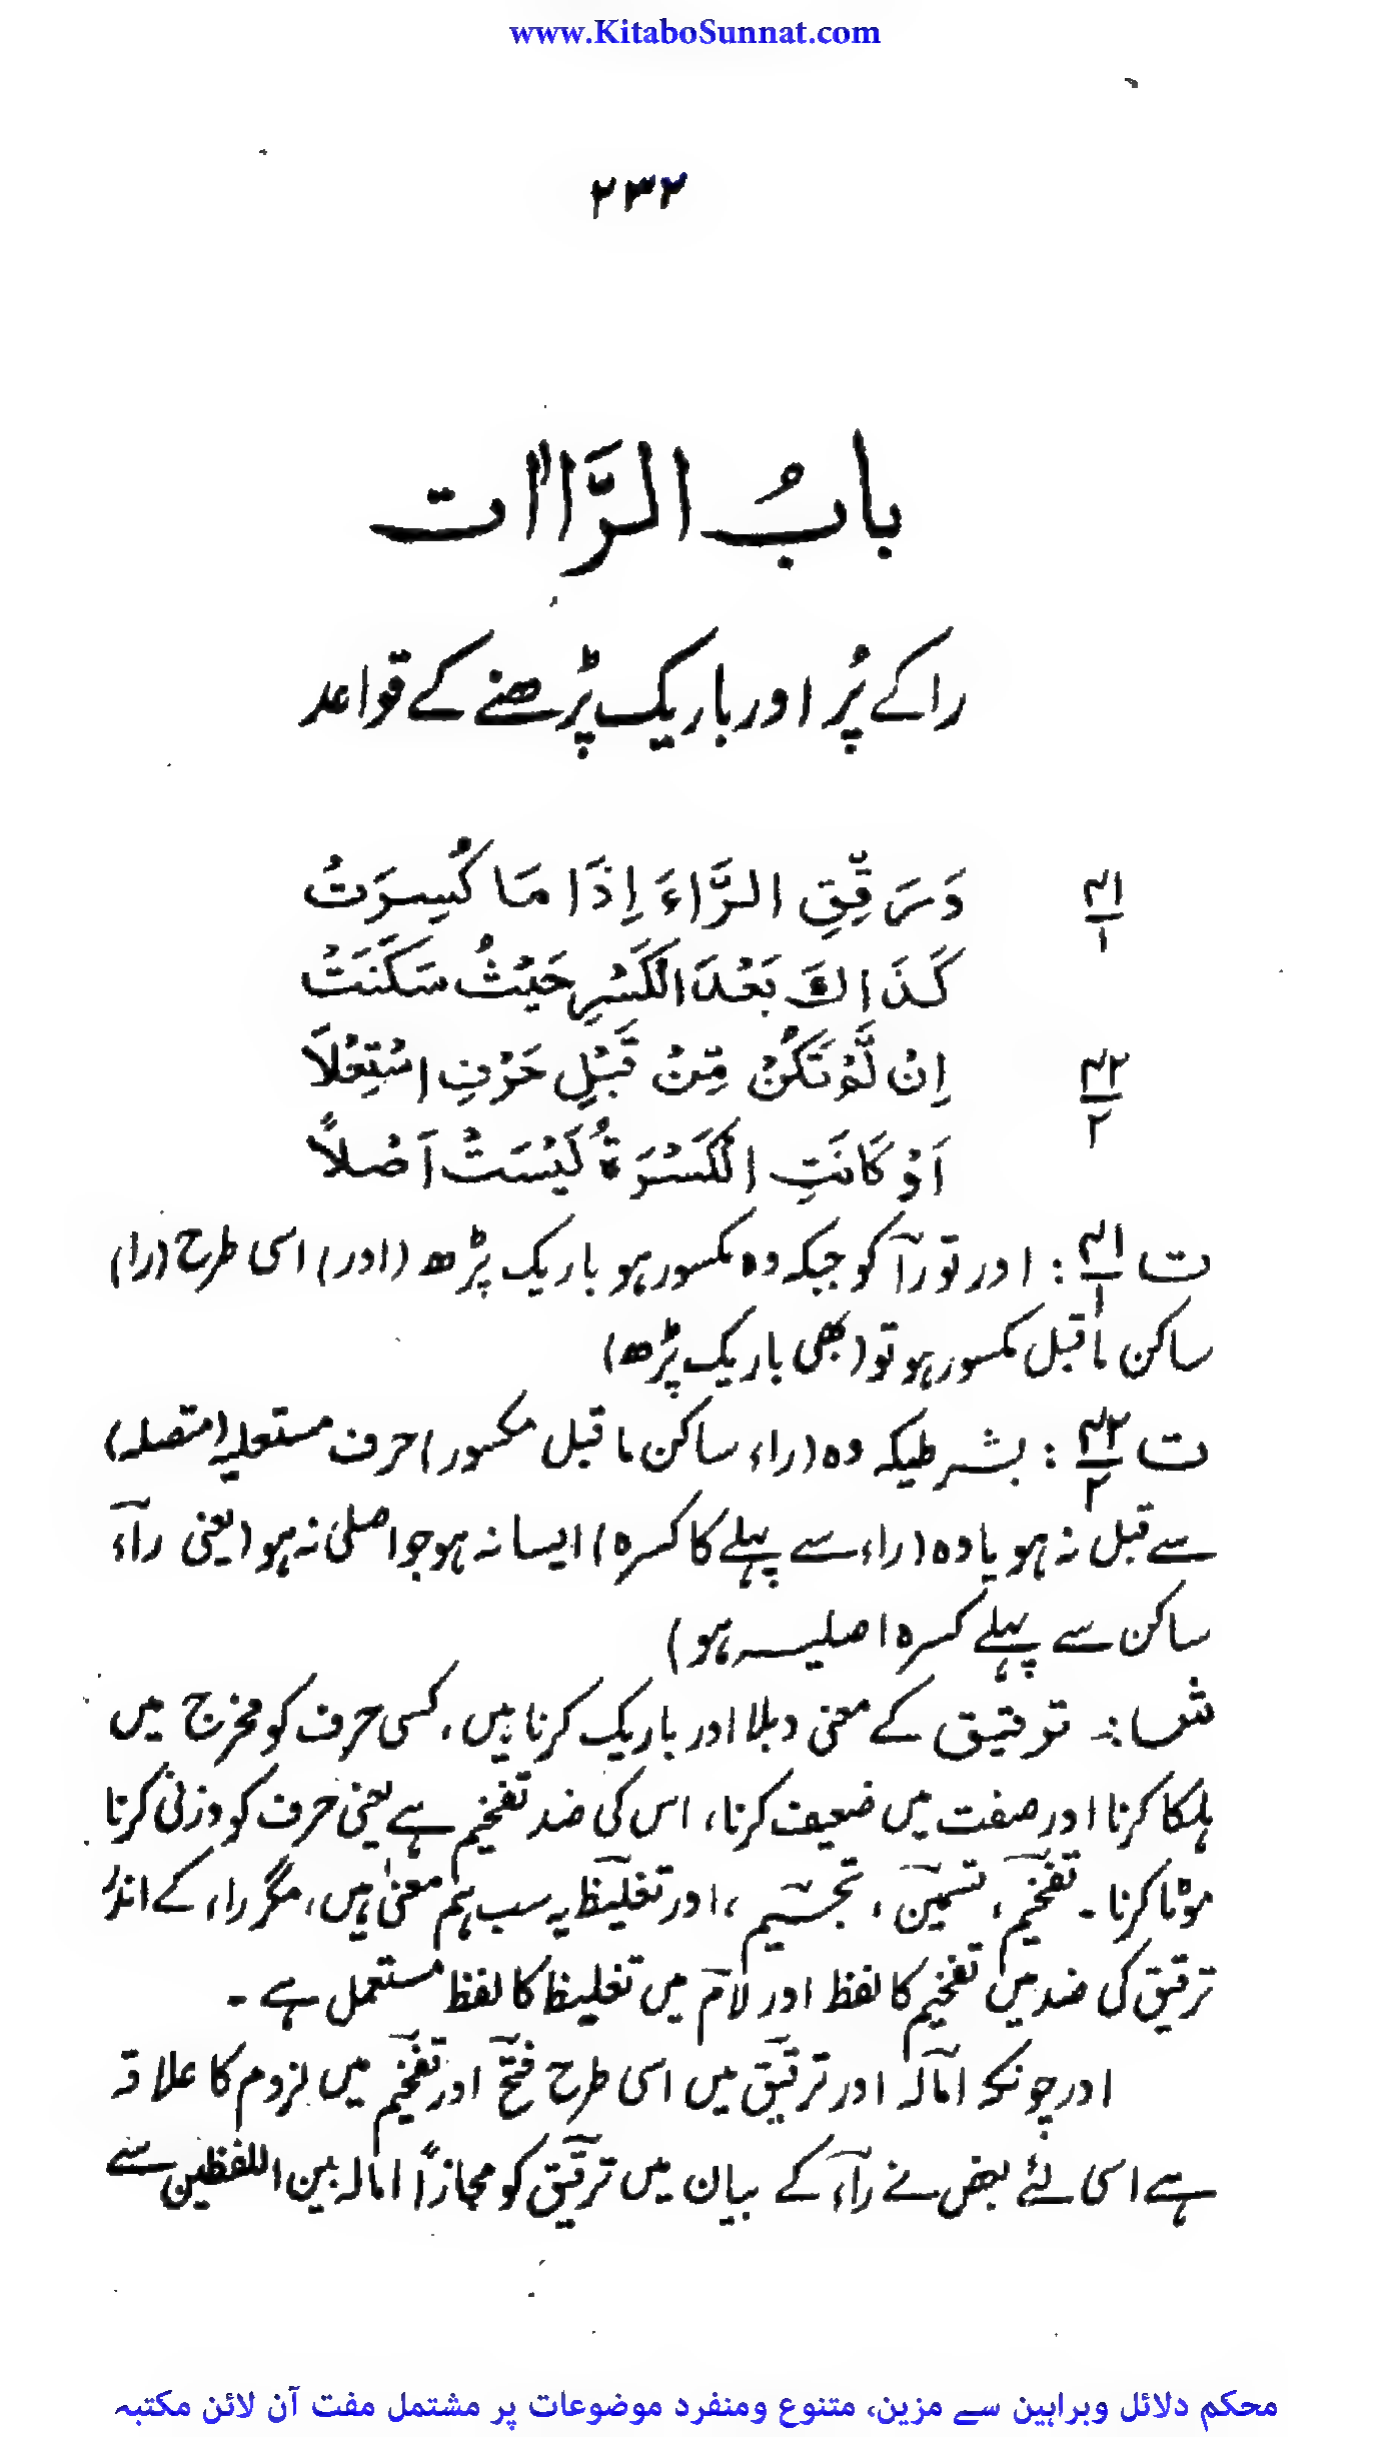 www.KitaboSunnat.com
۲۳۲
بابُ الرَّاات
را کے پُر اور باریک پڑھنے کے قواعد
۴۱/۱ وَرَقِّقِ الرَّاءَ اِذَا مَا كُسِرَتْ
كَذَاكَ بَعْدَ الْكَسْرِ حَيْثُ سَكَنَتْ
۴۲/۲ اِنْ لَّمْ تَكُنْ مِّنْ قَبْلِ حَرْفِ اسْتِعْلَا
اَوْ كَانَتِ الْكَسْرَةُ لَيْسَتْ اَصْلاً
ت ۴۱/۱ : اور تو رآ کو جبکہ وہ مکسور ہو باریک پڑھ (اور) اسی طرح (را)
ساکن ماقبل مکسور ہو تو (بھی باریک پڑھ)
ت ۴۲/۲ : بشرطیکہ وہ (راء ساکن ماقبل مکسور) حرف مستعلیہ (متصلہ)
سے قبل نہ ہو یا وہ (راء سے پہلے کا کسرہ) ایسا نہ ہو جو اصلی نہ ہو (یعنی رآء
ساکن سے پہلے کسرہ اصلیہ ہو)
ش ۱: ترقیق کے معنی دبلا اور باریک کرنا ہیں، کسی حرف کو مخرج میں
ہلکا کرنا اور صفت میں ضعیف کرنا، اس کی ضد تفخیم ہے یعنی حرف کو وزنی کرنا
موٹا کرنا۔ تفخیم، تسمین، تجسیم، اور تغلیظ یہ سب ہم معنیٰ ہیں، مگر راء کے اندر
ترقیق کی ضد میں تفخیم کا لفظ اور لام میں تغلیظ کا لفظ مستعمل ہے۔
اور چونکہ امالہ اور ترقیق میں اسی طرح فتح اور تفخیم میں لزوم کا علاقہ
ہے اسی لئے بعض نے رآء کے بیان میں ترقیق کو مجازاً امالہ بین اللفظین سے
محکم دلائل وبراہین سے مزین، متنوع ومنفرد موضوعات پر مشتمل مفت آن لائن مکتبہ